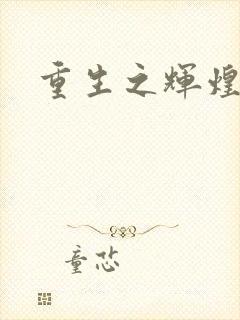 重生之辉煌
童芯